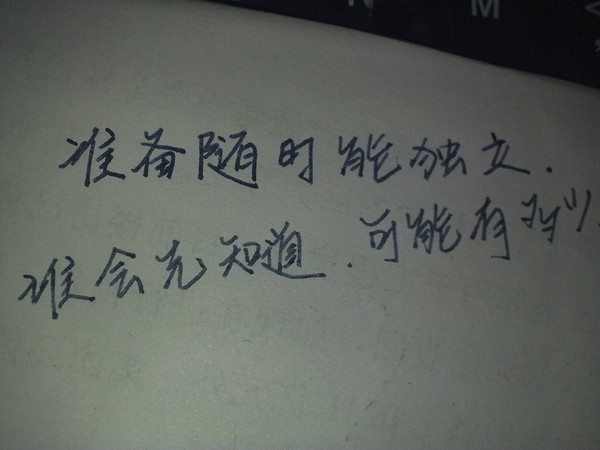 M
准备随时能独立.
谁会先知道.可能有